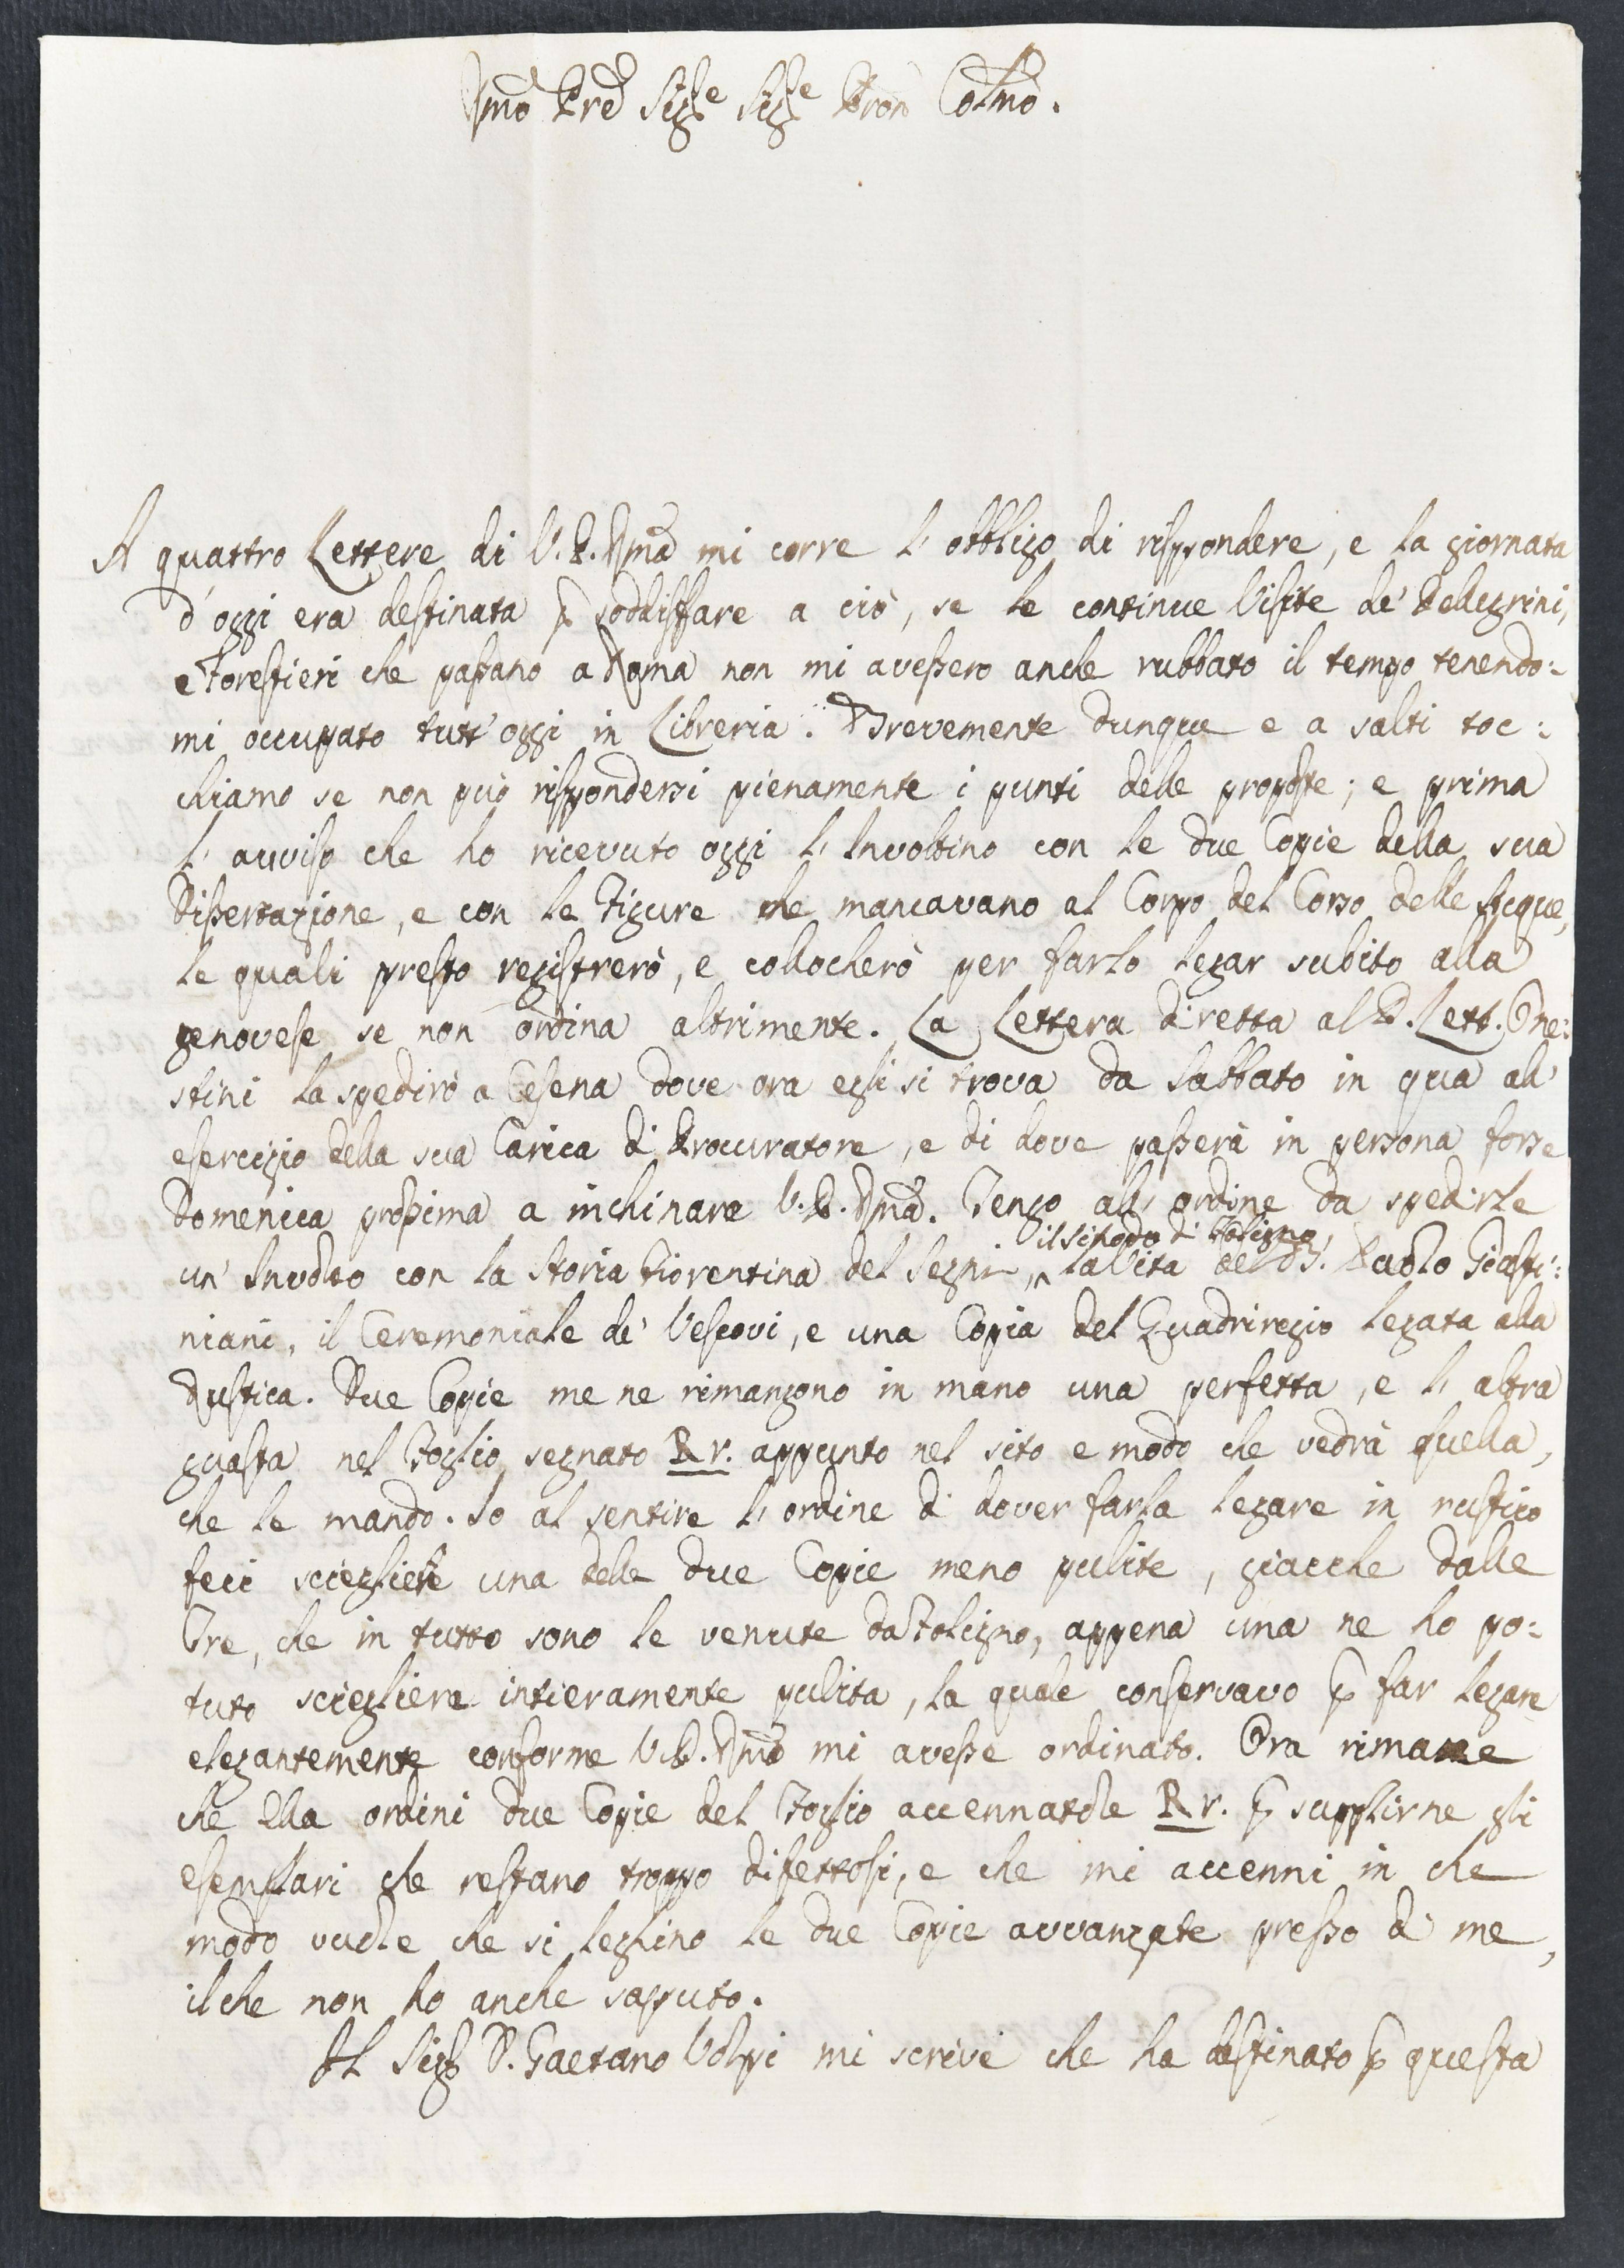 Rmo Pre Sigre Sigre Pron Colmo.
A quattro Lettere di V. P. Rma mi corre l'obbligo di rispondere, e la giornata
d'oggi era destinata p soddisffare a ciò, se le continue Visite de' Pellegrini,
e Forestieri che passano a Roma non mi avessero anche rubbato il tempo tenendo=
mi occupato tutt'oggi in Libreria. Brevemente dunque e a salti toc=
chiamo se non può rispondersi pienamente i punti delle proposte; e prima
l'avviso che ho ricevuto oggi l'Involtino con le due Copie della sua
Dissertazione, e con le Figure che mancavano al Corpo del Corso delle Acque,
le quali presto registrerò, e collocherò per farlo legar subito alla
genovese se non ordina altrimente. La Lettera diretta al P. Lett. One=
stini la spedirò a Cesena dove ora egli si trova da Sabbato in qua all'
esercizio della sua Carica di Proccuratore, e di dove passerà in persona forse
Domenica prossima a inchinare V. P. Rma. Tengo all'ordine da spedirle
il Sinodo di Foligno,
un' Involto con la Storia Fiorentina del Segni, la Vita del B. Paolo Giusti=
niani, il Ceremoniale de' Vescovi, e una Copia del Quadriregio legata alla
Rustica. Due Copie me ne rimangono in mano una perfetta, e l'altra
guasta nel Foglio segnato R r. appunto nel sito e modo che vedrà quella,
che le mando. Io al sentire l'ordine di dover farla legare in rustico
feci sciegliere una delle due Copie meno pulite, giacche dalle
Tre, che in tutto sono le venute da Foligno, appena una ne ho po=
tuto sciegliere intieramente pulita, la quale conservavo p far legare
elegantemente conforme V. P. Rma mi avesse ordinato. Ora rimane
che Ella ordini due Copie del Foglio accennatole R r. p supplirne gli
esemplari che restano troppo difettosi, e che mi accenni in che
modo vuole che si leghino le due Copie avvanzate presso di me,
il che non ho anche sapputo.
Il Sigr D. Gaetano Volpi mi scrive che ha destinato p questa